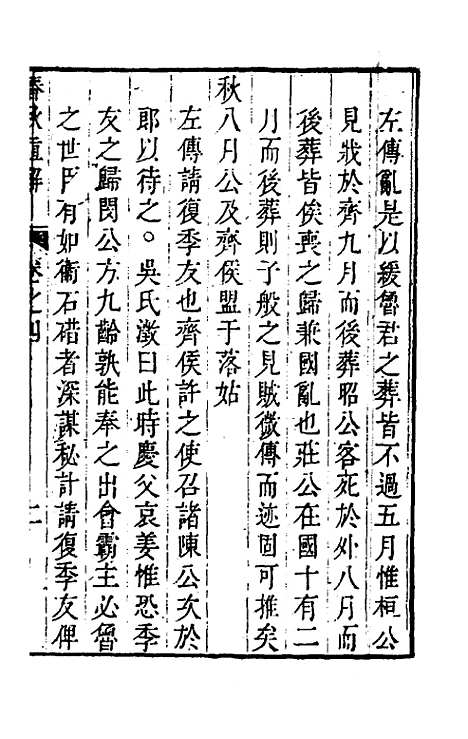 左傳亂是以緩魯君之葬皆不過五月惟桓公
見戕於齊九月而後葬昭公客死於外八月而
後葬皆俟喪之歸兼國亂也莊公在國十有二
月而後葬則子般之見賊微傳而迹固可推矣
秋八月公及齊侯盟于落姑
左傳請復季友也齊侯許之使召諸陳公次於
郎以待之。吳氏澂曰此時慶父哀姜惟恐季
友之歸閔公方九齡孰能奉之出會霸主必魯
之世臣有如衛石碏者深謀秘計請復季友俾
春秋直解
卷之四
二